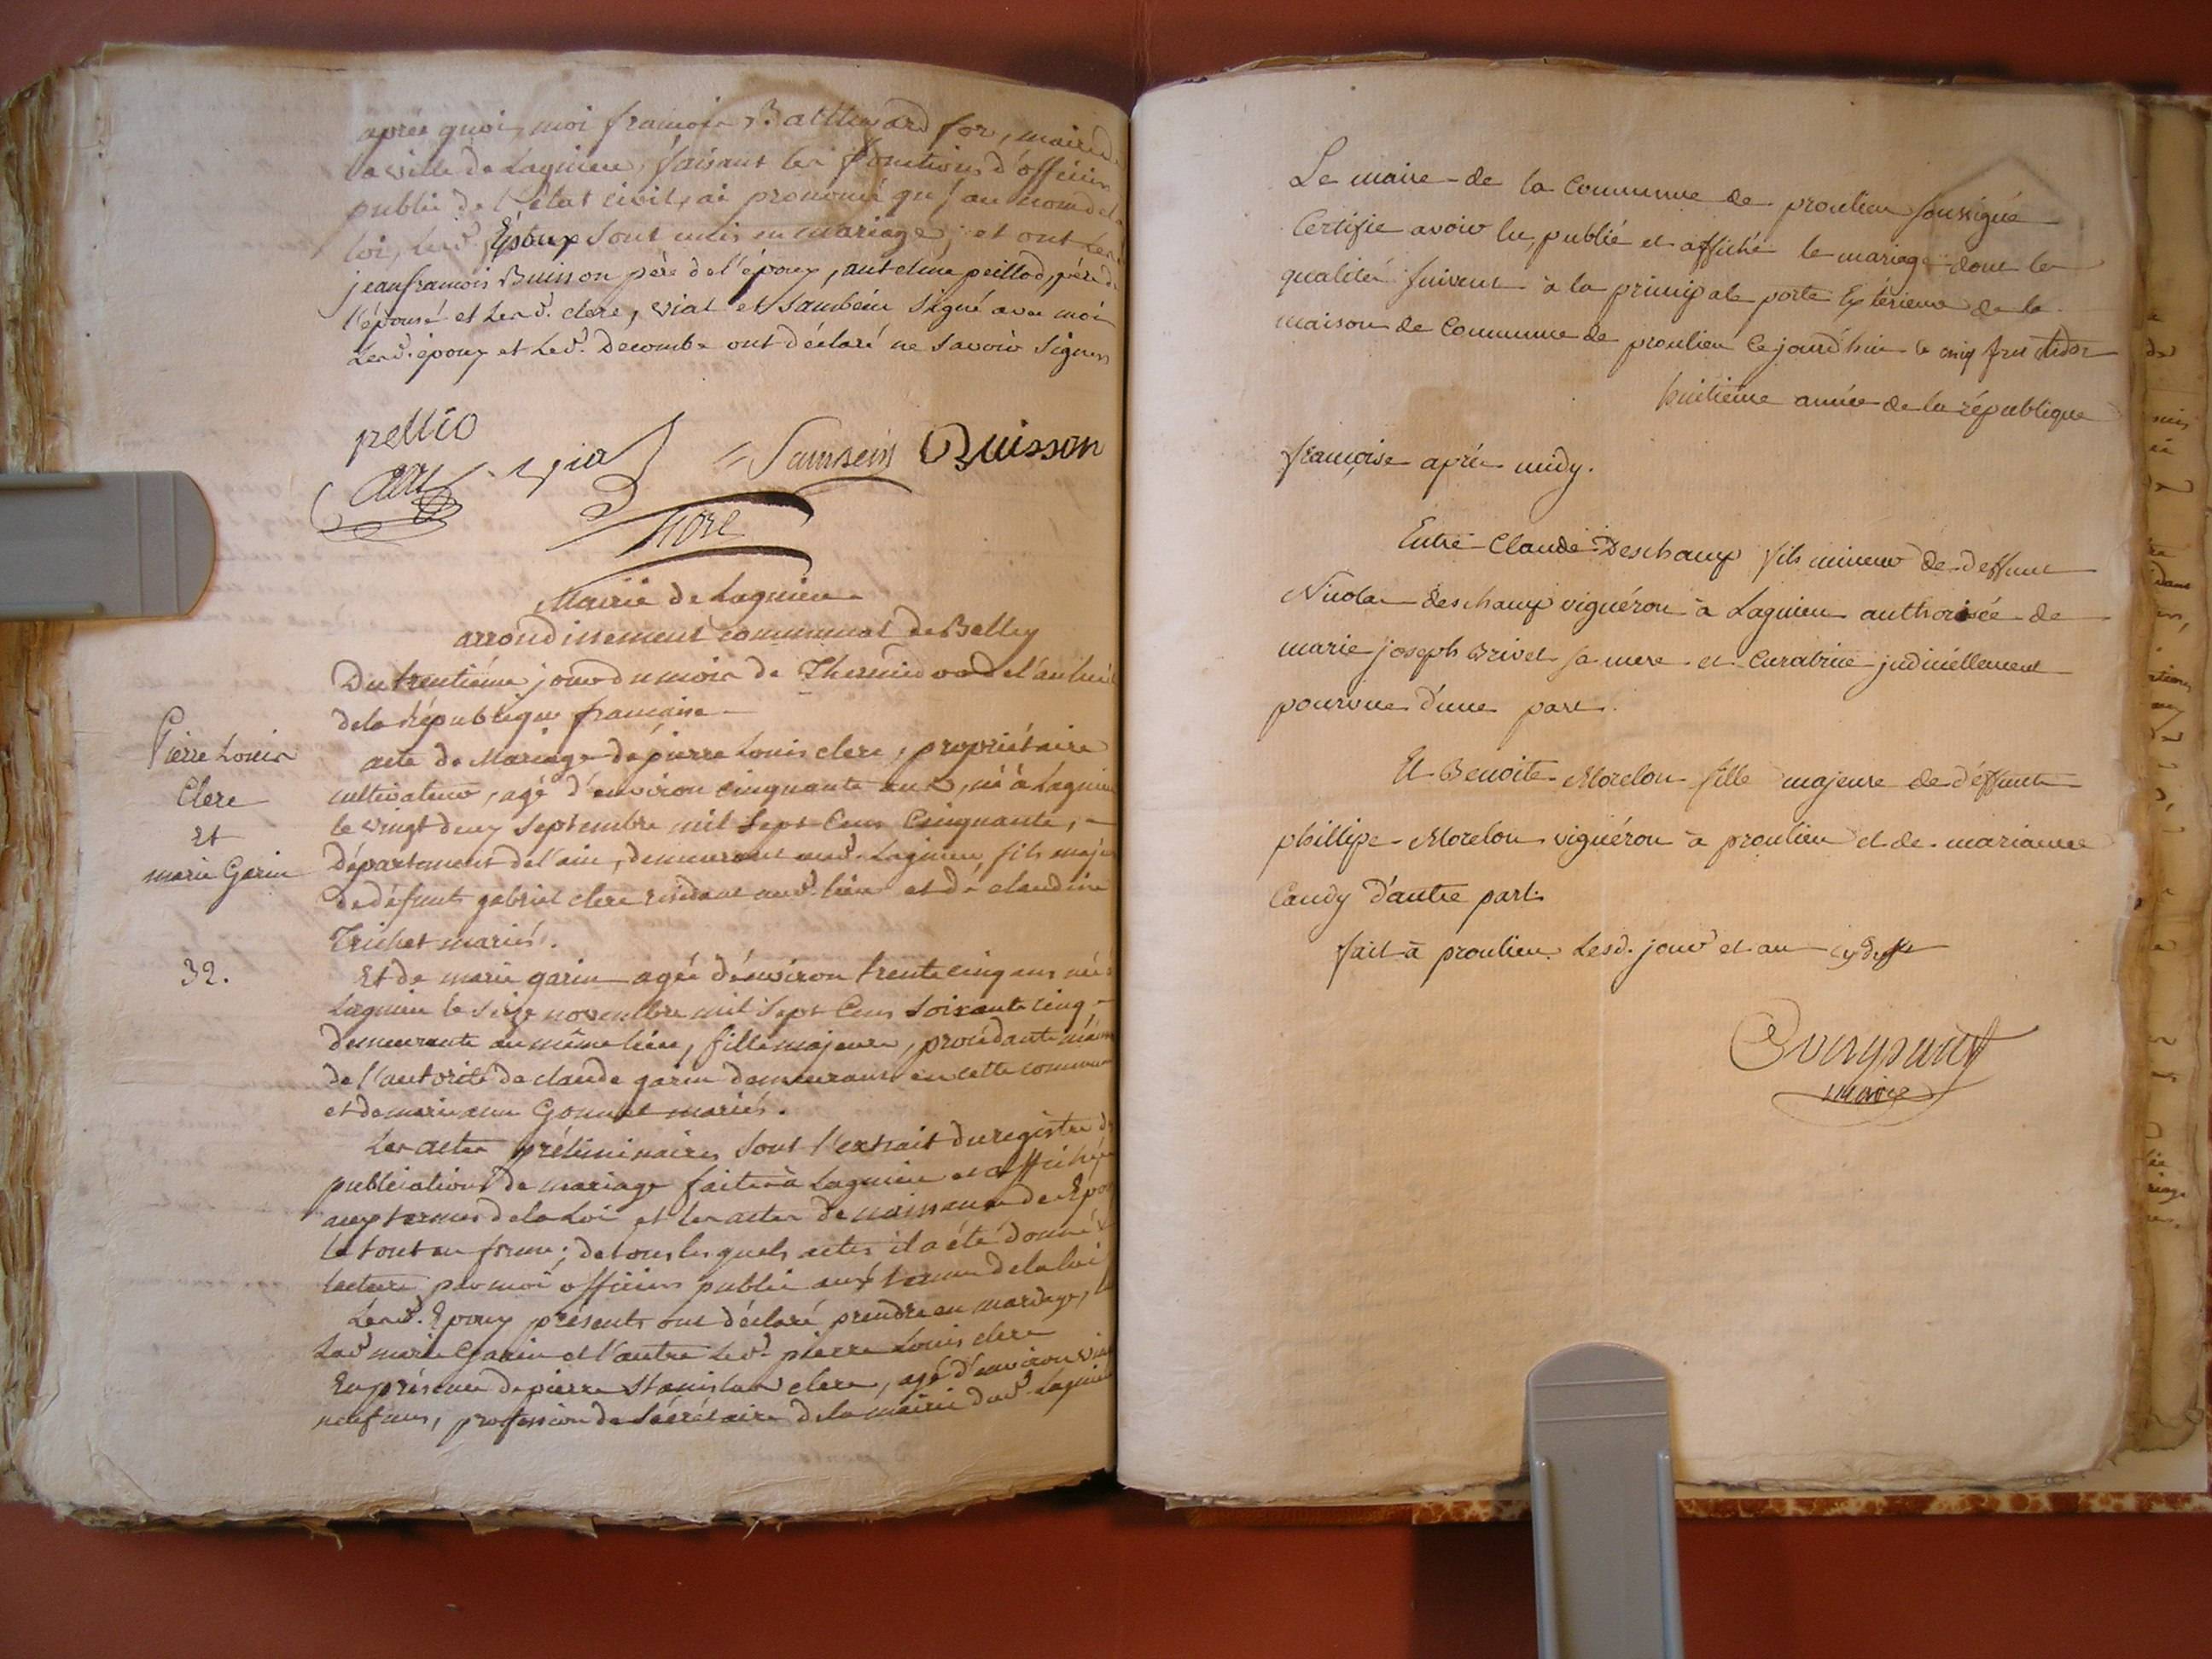 après quoi, moi françois Balthazard for, maire de
la ville de Lagnieu, faisant les fonctions d'officier
public de l'état civil, ai prononcé qu'au nom de la
loi, lesd. Époux sont unis en mariage; et ont les
jean françois Buisson père de l'époux, antelme peillod, père de
l'épouse et lesd. clerc, vial et sambein signé avec moi
lesd. époux et led. Decombe ont déclaré ne savoir signer
pellio
Buisson
Mairie de Lagnieu
arrondissement communal de Belley
Du trentième jour du mois de Thermidor de l'an huit
de la république française
Pierre Louis
Clerc
Et
marie Garin
32.
acte de Mariage de pierre Louis clerc, propriétaire
cultivateur, agé d'environ cinquante ans, né à Lagnieu
le vingt deux septembre mil sept Cens Cinquante,
Département de l'ain, demeurant aud. Lagnieu, fils majeur
de défunt gabriel clerc résidant aud. lieu et de claudine
Trichet mariés.
Et de marie garin agée d'environ trente cinq ans née à
Lagnieu le seize novembre mil sept Cens soixante cinq,
demeurante au même lieu, fille majeure, procédante
de l'autorité de claude garin demeurant en cette commune
et de marianne Gonnet mariés.
Les actes préliminaires sont l'extrait du registre des
publications de mariage faites à Lagnieu et affichées
aux termes de la Loi et les actes de naissance des Époux
le tout en forme; de tous lesquels actes il a été donné
lecture par moi officier public aux termes de la loi
Lesd. Époux présents ont déclaré prendre en mariage, l'un
Lad. marie Garin et l'autre led. pierre Louis clerc
En présence de pierre Stanislas clerc, agé d'environ vingt
neuf ans, profession de sécrétaire de la mairie dud. Lagnieu
Le maire de la Commune de proulieu soussigné
Certifie avoir lu, publié et affiché le mariage dont les
qualités suivent à la principale porte Extérieure de la
maison de Commune de proulieu Cejourd'hui le cinq fructidor
huitième année de la république
françoise après midy.
Entre Claude Deschamp fils mineur de deffunt
Nicolas deschamp vignéron à Lagnieu authorisée de
marie joseph Brivet sa mere et Curatrice judiciellement
pourvue d'une part.
Et Benoite Morelon fille majeure de déffunt
phillipe Morelon vignéron à proulieu et de marianne
Candy d'autre part.
fait à proulieu Lesd. jour et an
maire